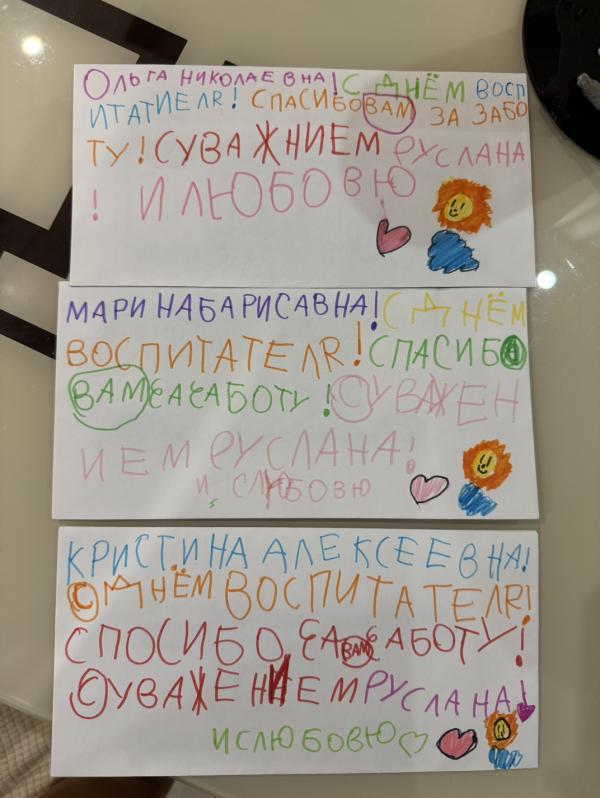 ОЛЬГА НИКОЛАЕВНА! С ДНЁМ ВОСП
ИТАТИЕЛЯ! СПАСИБО ВАМ ЗА ЗАБО
ТУ! СУВАЖНИЕМ РУСЛАНА
! И ЛЮБОВЮ
МАРИНАБАРИСАВНА! С ДНЁМ
ВОСПИТАТЕЛЯ! СПАСИБО
ВАМ ЗА ЗАБОТУ! СУВАЖЕН
ИЕМ РУСЛАНА!
И СЛЮБОВЮ
КРИСТИНА АЛЕКСЕЕВНА!
С ДНЁМ ВОСПИТАТЕЛЯ!
СПОСИБО ЗА ВАМ ЗАБОТУ!
СУВАЖЕНИЕМ РУСЛАНА!
ИСЛЮБОВЮ